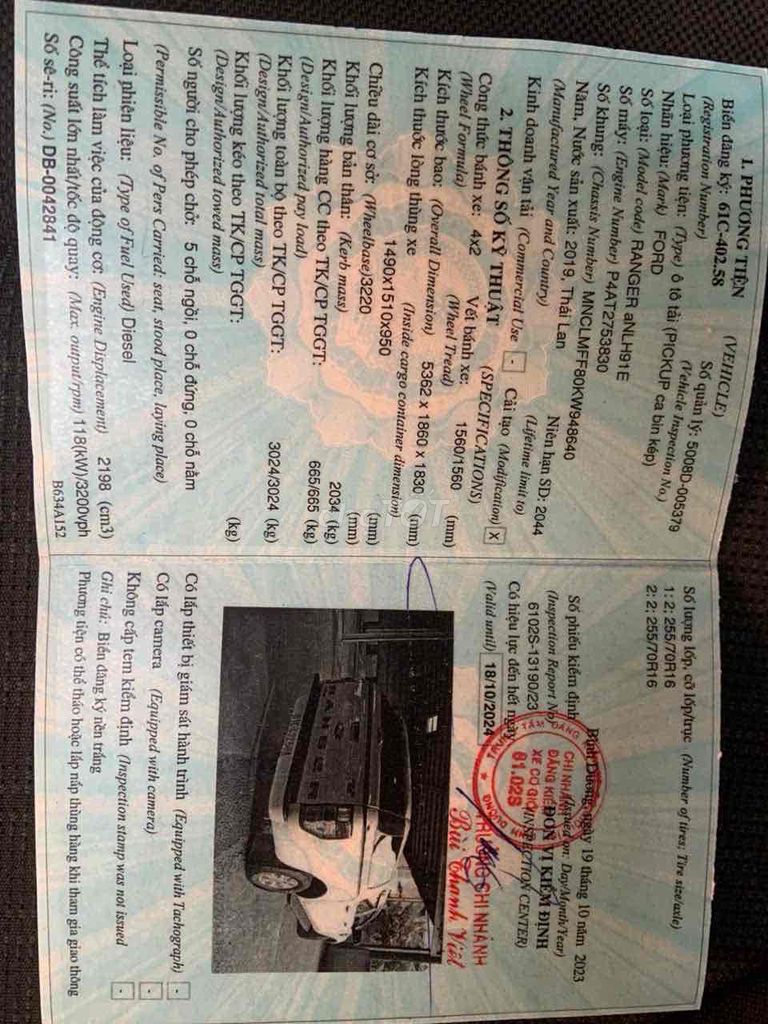 1. PHƯƠNG TIỆN (VEHICLE)
Biển đăng ký: 61C-402.58 Số quản lý: 5008D-005379
(Registration Number) (Vehicle Inspection No.)
Loại phương tiện: (Type) ô tô tải (PICKUP ca bin kép)
Nhãn hiệu: (Mark) FORD
Số loại: (Model code) RANGER aNLH91E
Số máy: (Engine Number) P4AT2753830
Số khung: (Chassis Number) MNCLMFF80KW948640
Năm, Nước sản xuất: 2019, Thái Lan Niên hạn SD: 2044
(Manufactured Year and Country) (Lifetime limit to)
Kinh doanh vận tải (Commercial Use) - Cải tạo (Modification) X
2. THÔNG SỐ KỸ THUẬT (SPECIFICATIONS)
Công thức bánh xe: 4x2 Vết bánh xe: 1560/1560 (mm)
(Wheel Formula) (Wheel Tread)
Kích thước bao: (Overall Dimension) 5362 x 1860 x 1830 (mm)
Kích thước lòng thùng xe (Inside cargo container dimension)
1490x1510x950 (mm)
Chiều dài cơ sở: (Wheelbase)3220 (mm)
Khối lượng bản thân: (Kerb mass) 2034 (kg)
Khối lượng hàng CC theo TK/CP TGGT: 665/665 (kg)
(Design/Authorized pay load)
Khối lượng toàn bộ theo TK/CP TGGT: 3024/3024 (kg)
(Design/Authorized total mass)
Khối lượng kéo theo TK/CP TGGT: (kg)
(Design/Authorized towed mass)
Số người cho phép chở: 5 chỗ ngồi, 0 chỗ đứng, 0 chỗ nằm
(Permissible No. of Pers Carried: seat, stood place, laying place)
Loại nhiên liệu: (Type of Fuel Used) Diesel
Thể tích làm việc của động cơ: (Engine Displacement) 2198 (cm3)
Công suất lớn nhất/tốc độ quay: (Max. output/rpm) 118(kW)/3200vph
Số sê-ri: (No.) DB-0042841 B634A152
Số lượng lốp, cỡ lốp/trục (Number of tires; Tire size/axle)
1: 2; 255/70R16
2: 2; 255/70R16
Bình Dương, ngày 19 tháng 10 năm 2023
(Issued on: Day/Month/Year)
Số phiếu kiểm định ĐƠN VỊ KIỂM ĐỊNH
(Inspection Report No) (INSPECTION CENTER)
6102S-13190/23
Có hiệu lực đến hết ngày
(Valid until) 18/10/2024
CHI NHÁNH
ĐĂNG KIỂM
XE CƠ GIỚI
61.02S
CHI NHÁNH
Bùi Thanh Việt
RANGER
Có lắp thiết bị giám sát hành trình (Equipped with Tachograph) -
Có lắp camera (Equipped with camera) -
Không cấp tem kiểm định (Inspection stamp was not issued -
Ghi chú: Biển đăng ký nền trắng
Phương tiện có thể tháo hoặc lắp nắp thùng hàng khi tham gia giao thông